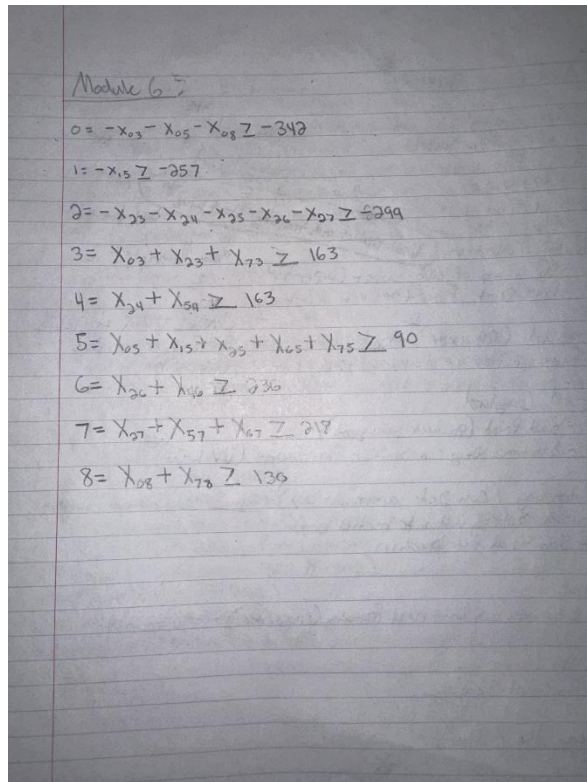 Module 6 =
0 = -X03 - X05 - X08 ≥ -342
1 = -X15 ≥ -257
2 = -X23 - X24 - X25 - X26 - X27 ≥ -299
3 = X03 + X23 + X73 ≥ 163
4 = X24 + X54 ≥ 163
5 = X05 + X15 + X25 + X65 + X75 ≥ 90
6 = X26 + X46 ≥ 236
7 = X27 + X57 + X67 ≥ 218
8 = X08 + X78 ≥ 136